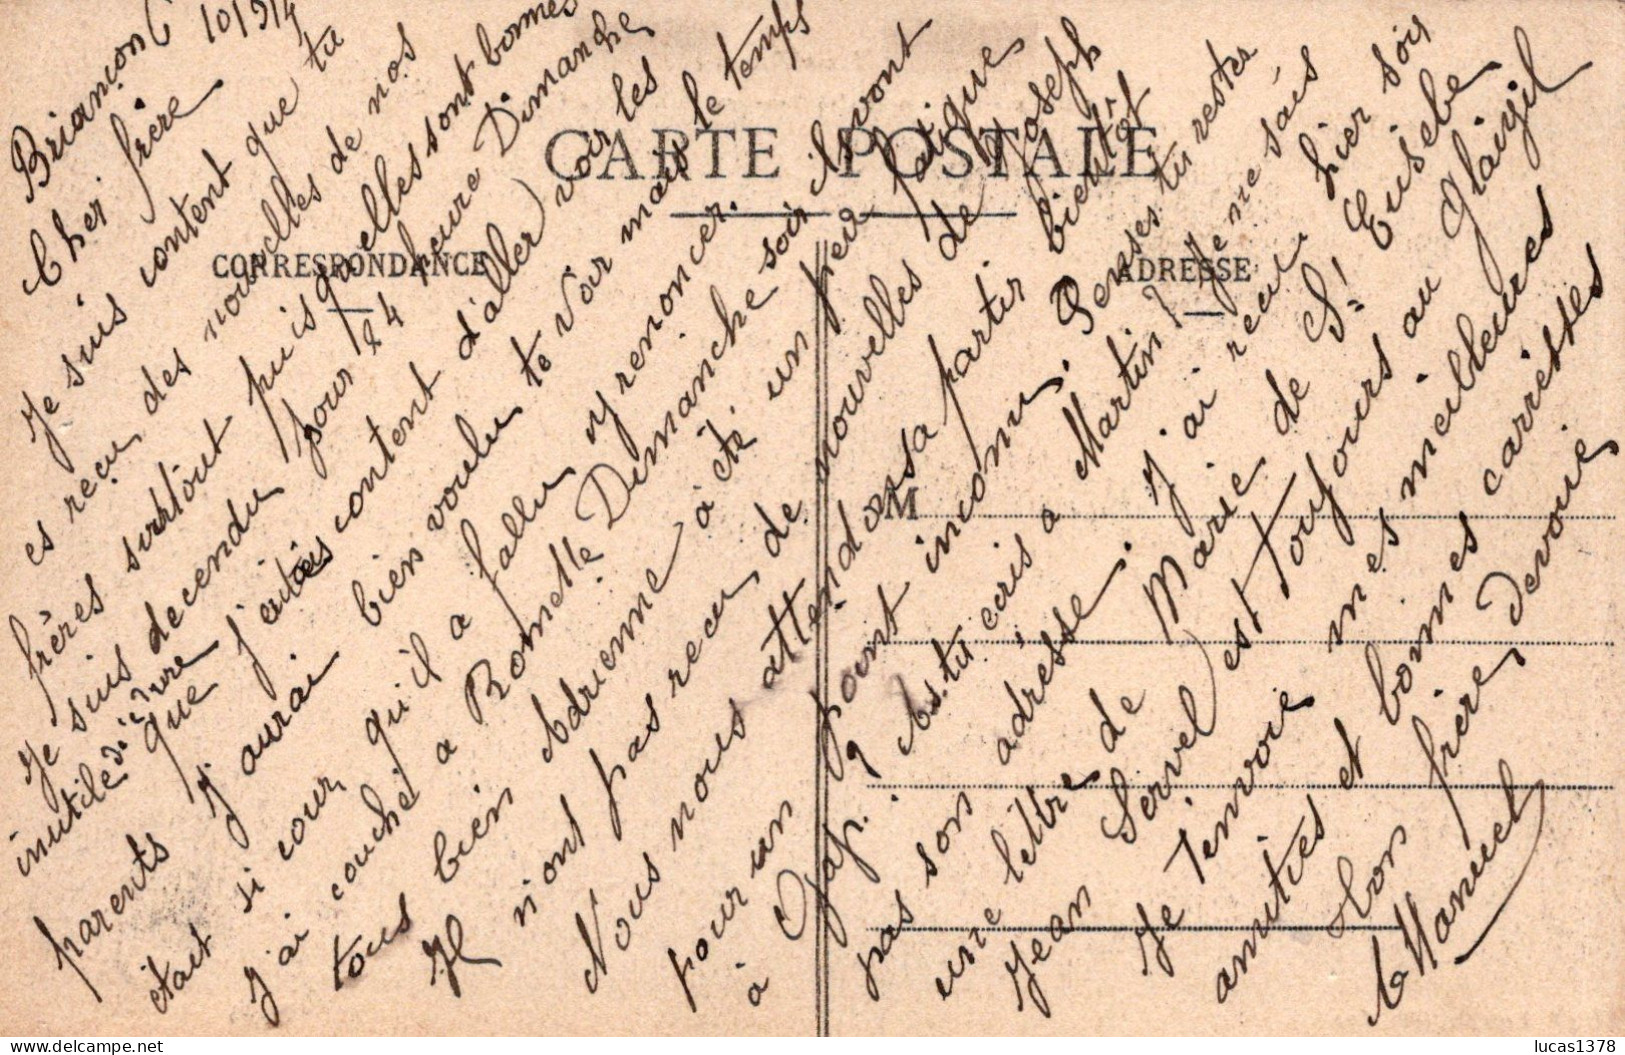 CARTE POSTALE
CORRESPONDANCE
ADRESSE
M
Briançon 6 10/9/14
Cher frère
Je suis content que tu
es reçu des nouvelles de nos
frères surtout puisqu'elles sont bonnes
Je suis decendu pour 24 heure Dimanche
inutile di ecire que j'entais content d'aller voir les
parents j'aurai bien voulu te voir mais le temps
étant si cour qu'il a fallu y renoncer.
J'ai couché a Romette Dimanche soir ils vont
tous bien Adrienne à été un peu faigue
Il n'ont pas recu de nouvelles de Joseph
Nous nous attendons a partir bientôt
pour un point inconnu. Penses tu restes
à Gap? As-tu ecris a Martin? Je ne sais
pas son adrésse. J'ai recu hier soir
une lettre de Marie de St Eusebe
Jean Servel est toujours au Glaizil
Je t'envoie mes meilleures
amitiés et bonnes carrésses
Ton frère devoué
EManuel
lucas1378